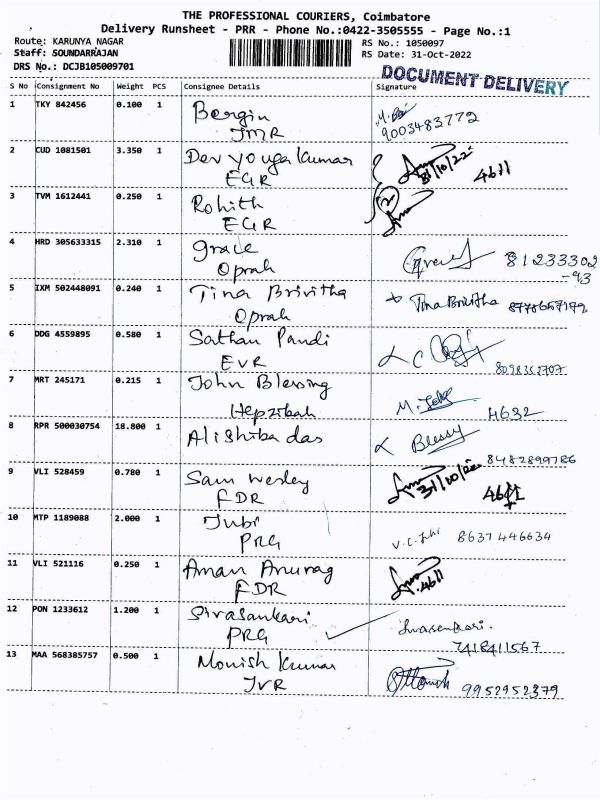 THE PROFESSIONAL COURIERS, Coimbatore
Delivery Runsheet - PRR - Phone No.:0422-3505555 - Page No.:1
Route: KARUNYA NAGAR
RS No.: 1050097
Staff: SOUNDARRAJAN
RS Date: 31-Oct-2022
DRS No.: DCJB105009701
DOCUMENT DELIVERY
S No Consignment No Weight PCS Consignee Details Signature
1 TKY 842456 0.100 1 Bergin
JMR 9003483772
2 CUD 1081501 3.350 1 Dev youga kumar 31/10/22 4611
EGR
3 TVM 1612441 0.250 1 Rohith 2
EGR
4 HRD 305633315 2.310 1 Grace 81233302
Oprah -93
5 IXM 502448091 0.240 1 Tina Brivitha Tina Brivitha 8778657172
Oprah
6 DDG 4559895 0.580 1 Sathan Pandi
EVR 8098352707
7 MRT 245171 0.215 1 John Blessing
Hepzibah 4632
8 RPR 500030754 18.800 1 Alishiba das Blessy
8482899786
9 VLI 528459 0.780 1 Sam wesley 31/10/22 4611
FDR
10 MTP 1189088 2.000 1 Jubi 8637446634
PRG
11 VLI 521116 0.250 1 Aman Anurag 4611
FDR
12 PON 1233612 1.200 1 Sivasankari Sivasankari.
PRG 7418411567
13 MAA 568385757 0.500 1 Monish kumar
JVR 9952952379